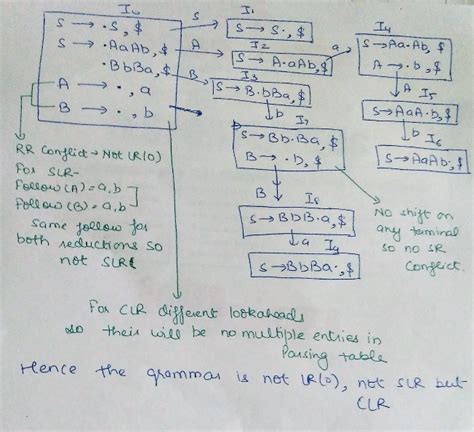 I0
S → ·S, $
S → ·AaAb, $
·BbBa, $
A → ·, a
B → ·, b
S
I1
S → S·, $
A
I2
S → A·aAb, $
B
I3
S → B·bBa, $
a
I4
S → Aa·Ab, $
A → ·b, $
A
I5
S → AaA·b, $
b
I6
S → AaAb·, $
b
I7
S → Bb·Ba, $
B → ·b, $
B
I8
S → BbB·a, $
a
I9
S → BbBa·, $
RR Conflict → Not LR(0)
For SLR-
Follow(A) = a,b
Follow(B) = a,b
Same follow for
both reductions so
not SLR
No shift on
any terminal
so no SR
Conflict.
For CLR different lookaheads
so their will be no multiple entries in
Parsing table
Hence the grammar is not LR(0), not SLR but
CLR